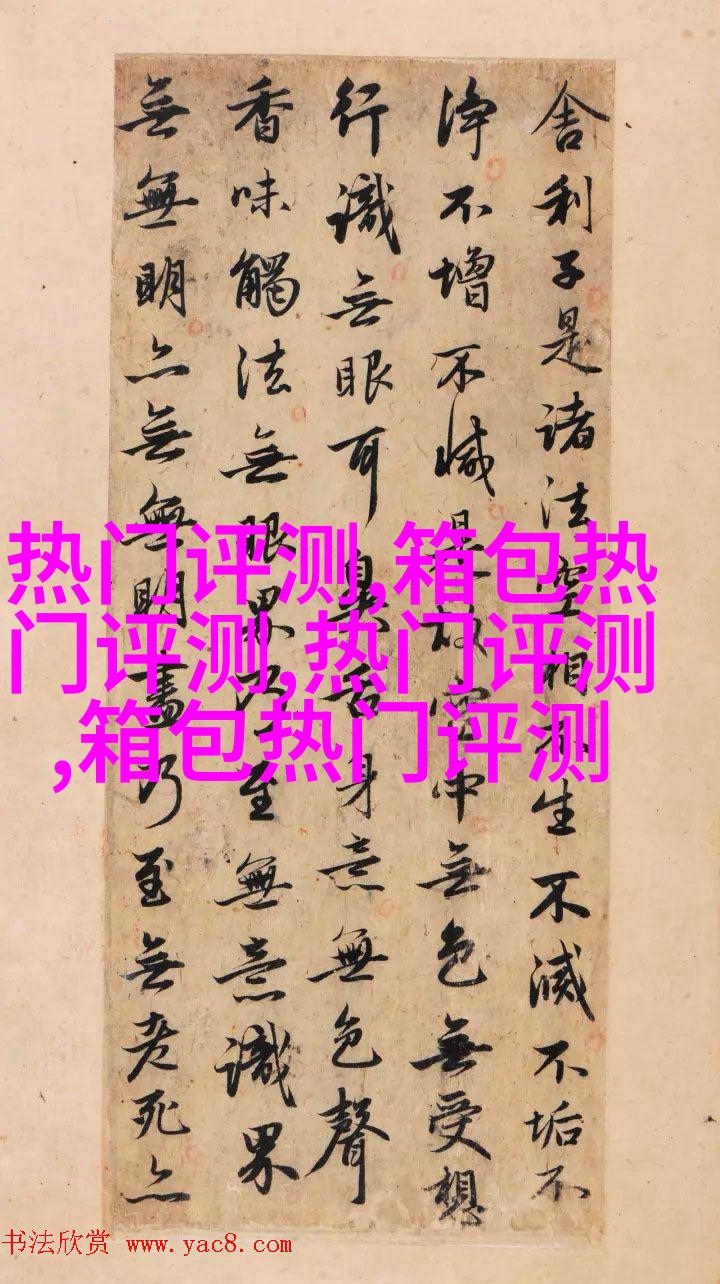 舍利子是諸法空相不生不滅不垢不
淨不增不減是故空中無色無受想
行識無眼耳鼻舌身意無色聲
香味觸法無眼界乃至無意識界
無無明亦無無明盡乃至無老死亦
热门评测,箱包热
门评测,热门评测
,箱包热门评测
书法欣赏 www.yac8.com